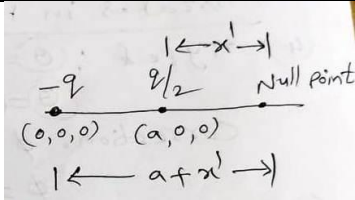 |← x' →|
-q q/2 Null point
(0,0,0) (a,0,0)
|← a+x' →|